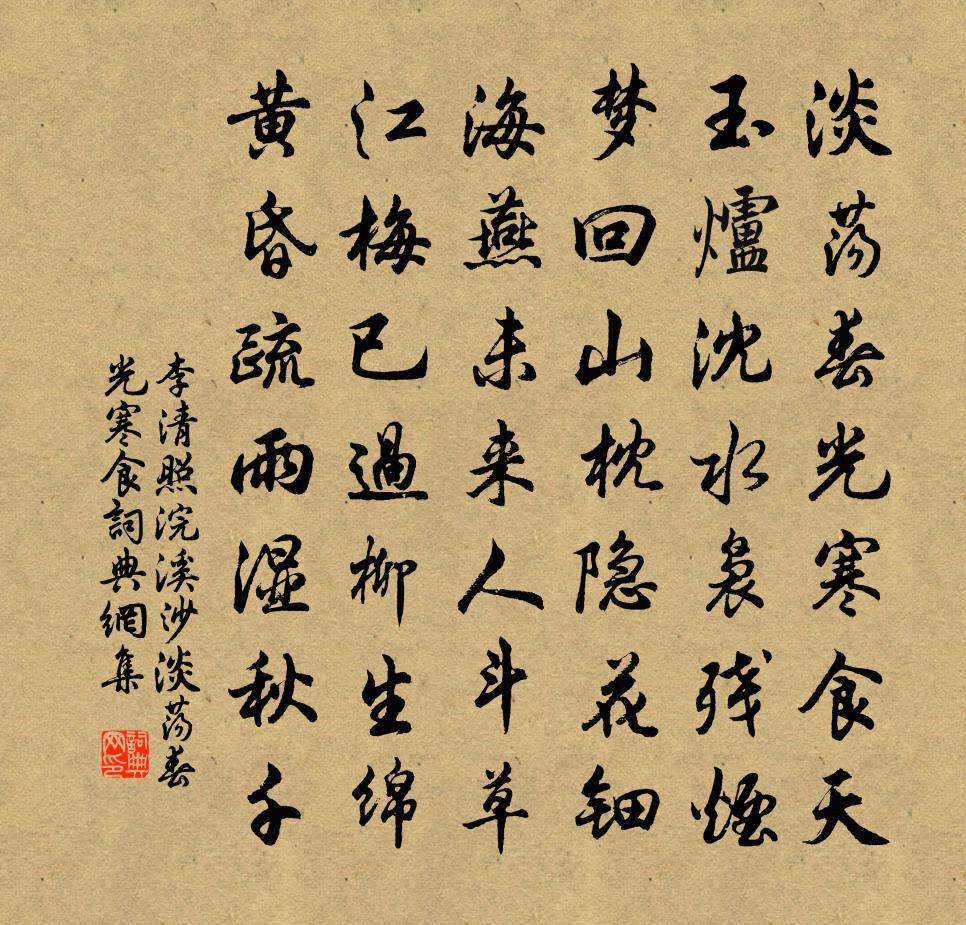 淡荡春光寒食天
玉爐沈水袅残煙
梦回山枕隐花钿
海燕未来人斗草
江梅已過柳生绵
黄昏疏雨湿秋千
李清照浣溪沙淡荡春
光寒食詞典網集
詞典网印